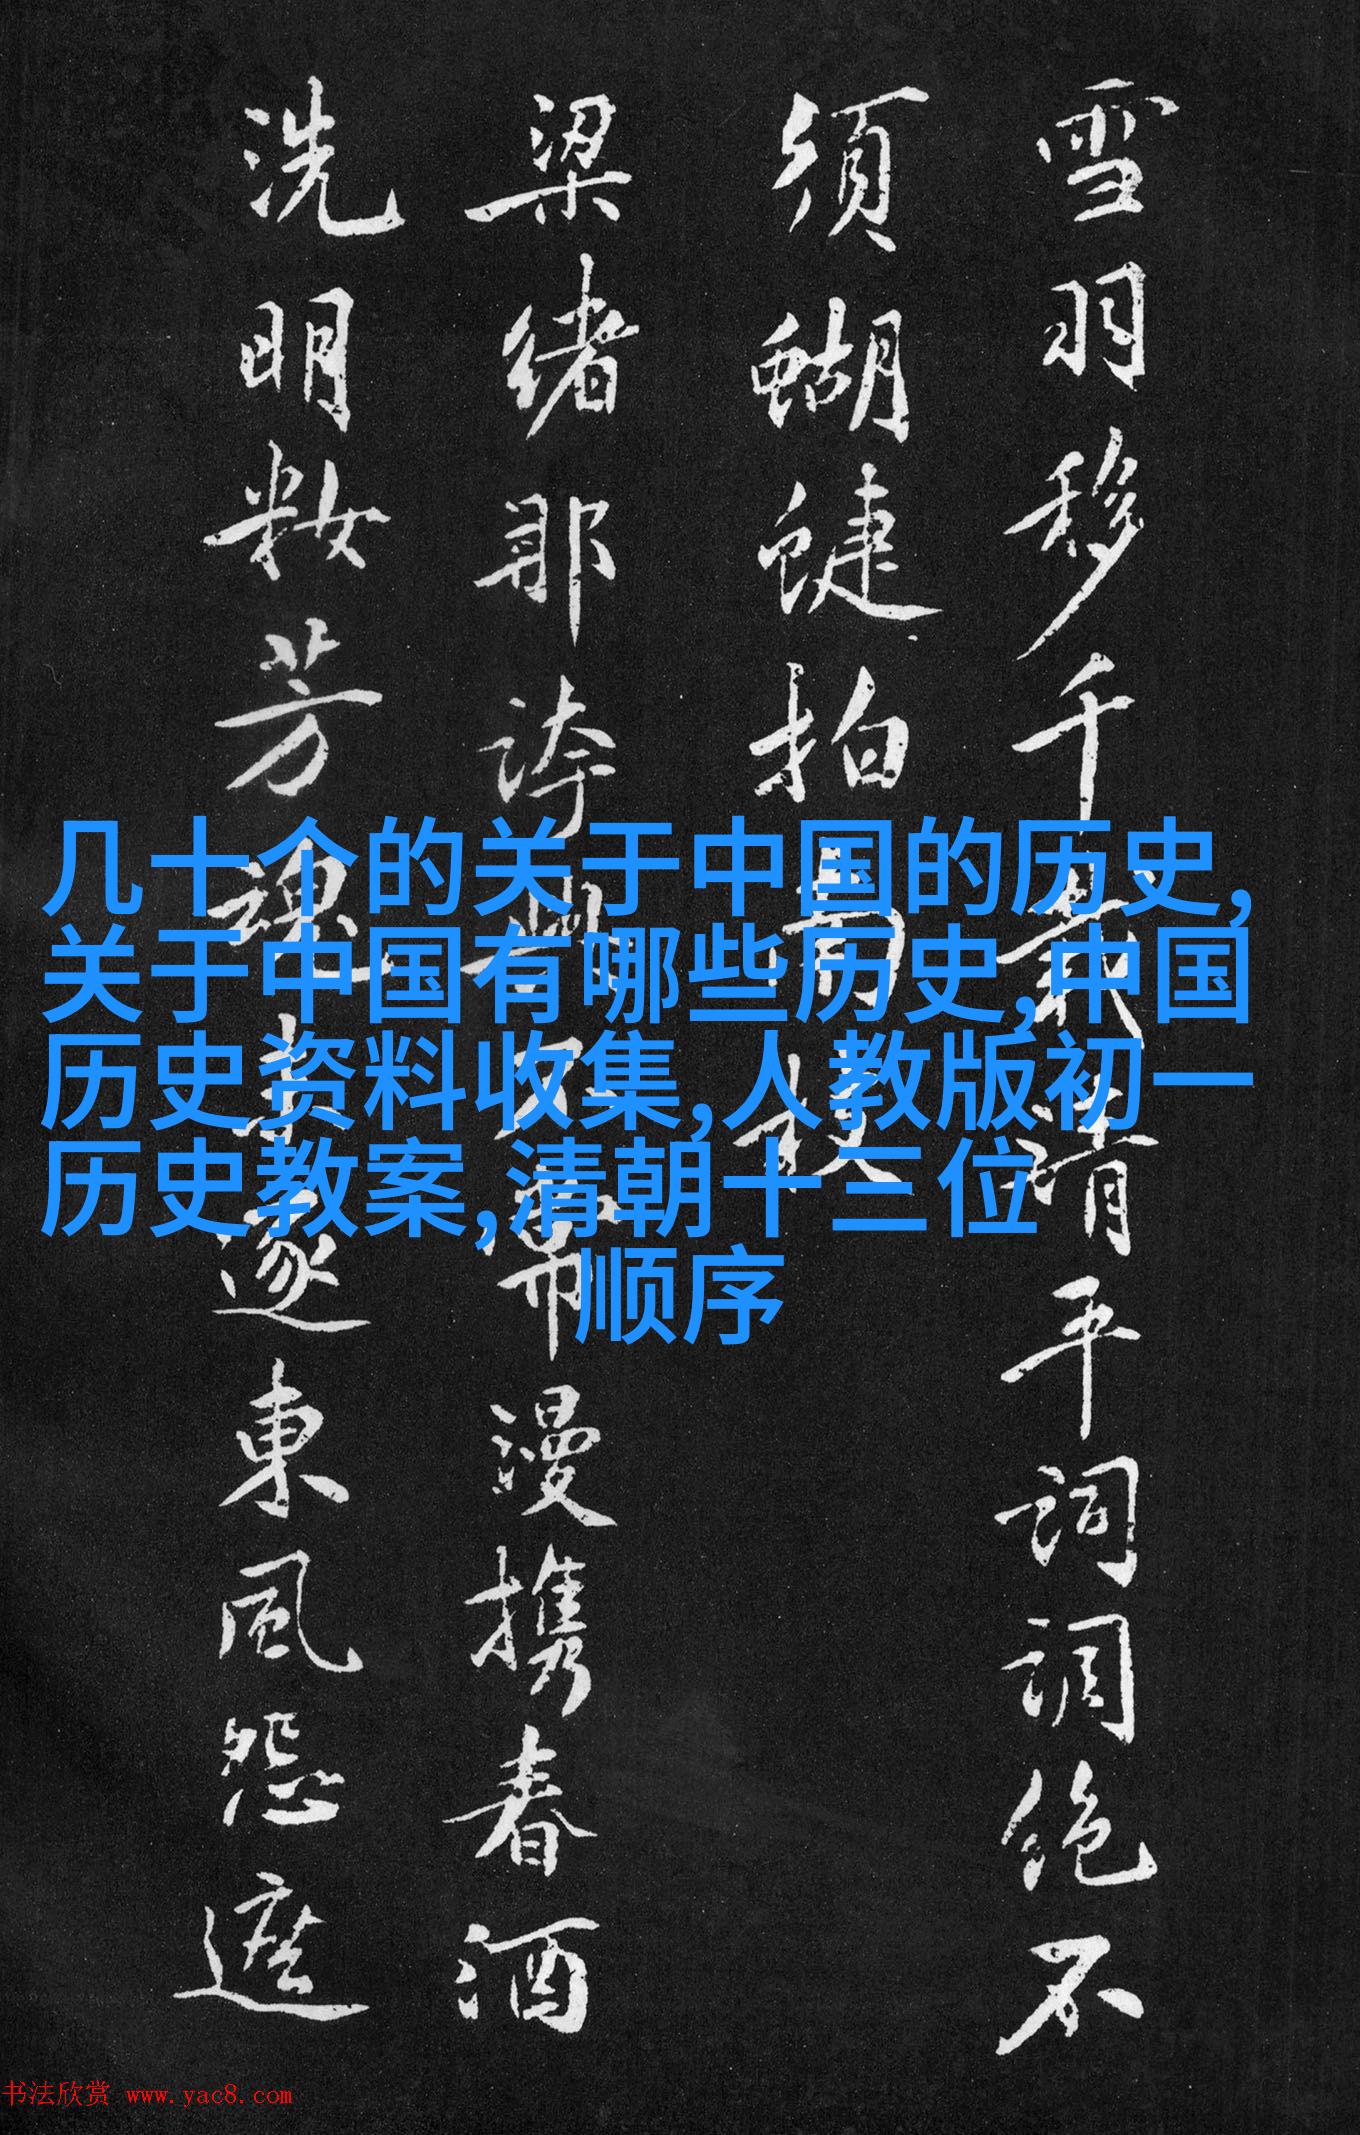 雪羽移千載清平词调绝不
須蝴蝶拍為板
梁绪那誇興不常漫携春酒
洗明妝芳魂莫逐東風怨遮
几十个的关于中国的历史,
关于中国有哪些历史,中国
历史资料收集,人教版初一
历史教案,清朝十三位
顺序
书法欣赏 www.yac8.com